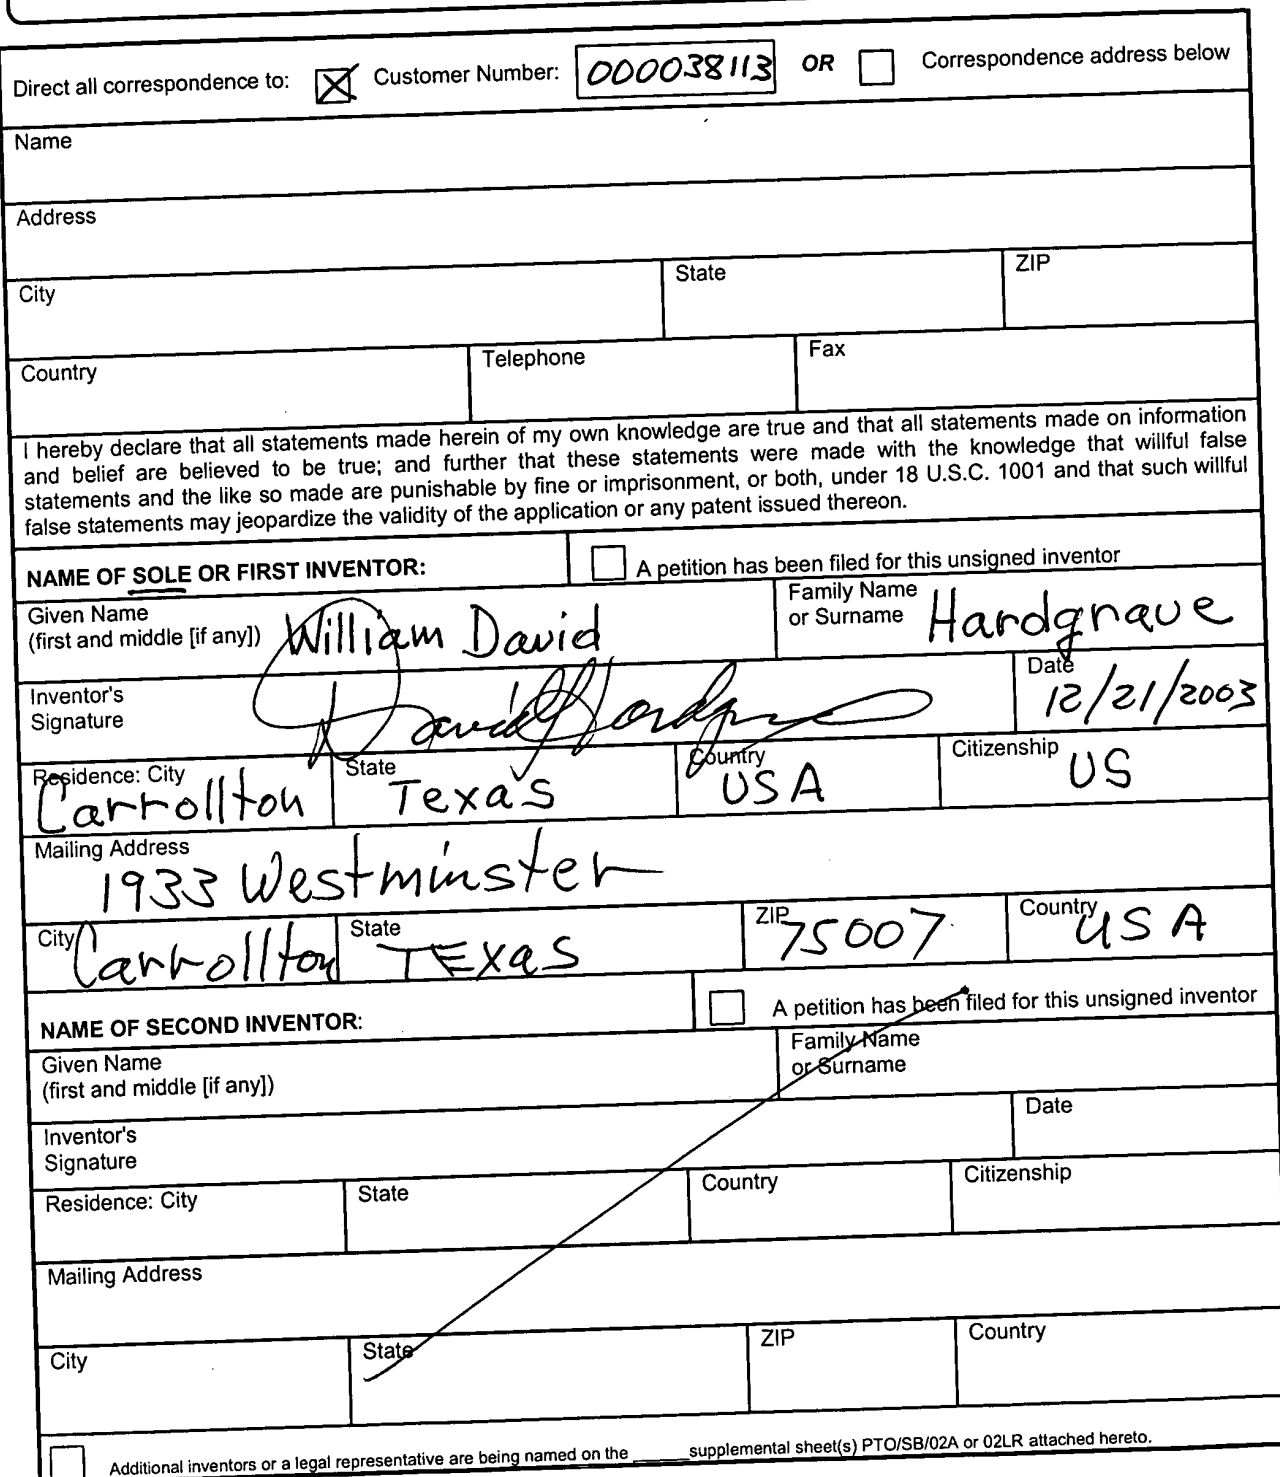 Direct all correspondence to: Customer Number: 000038113 OR Correspondence address below
Name
Address
City State ZIP
Country Telephone Fax
I hereby declare that all statements made herein of my own knowledge are true and that all statements made on information
and belief are believed to be true; and further that these statements were made with the knowledge that willful false
statements and the like so made are punishable by fine or imprisonment, or both, under 18 U.S.C. 1001 and that such willful
false statements may jeopardize the validity of the application or any patent issued thereon.
NAME OF SOLE OR FIRST INVENTOR: A petition has been filed for this unsigned inventor
Given Name
(first and middle [if any]) William David
Family Name
or Surname Hardgrave
Inventor's
Signature David Hardgrave
Date
12/21/2003
Residence: City State Country Citizenship
Carrollton Texas USA US
Mailing Address
1933 Westminster
City Carrollton State Texas ZIP 75007 Country USA
NAME OF SECOND INVENTOR: A petition has been filed for this unsigned inventor
Given Name
(first and middle [if any])
Family Name
or Surname
Inventor's
Signature
Date
Residence: City State Country Citizenship
Mailing Address
City State ZIP Country
Additional inventors or a legal representative are being named on the ______supplemental sheet(s) PTO/SB/02A or 02LR attached hereto.